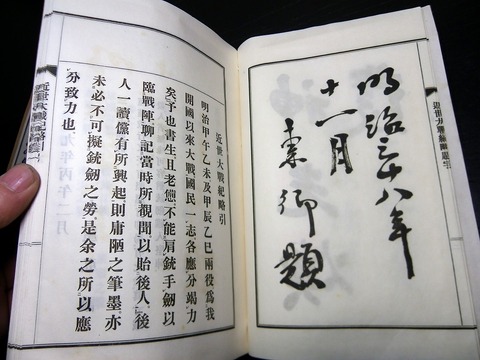 明治三十八年
十一月
題
近世大戰紀略引
明治甲午乙未及甲辰乙巳兩役爲我
開國以來大戰國民一志各應分竭力
矣予也書生且老憊不能肩銃手劒以
臨戰陣聊記當時所觀聞以貽後人後
人一讀儻有所興起則庸陋之筆墨亦
未必不可擬銃劒之勞是余之所以應
分致力也
近世大戰紀略